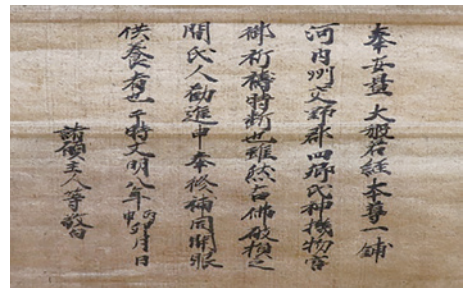 奉安置 大般若経本尊一舗
河内州交野郡四郷氏神機物宮
御祈祷時新也雖然古佛破損之
間氏人勧進申奉修補同開眼
供養者也于時文明八年丙申卯月日
諸願主人等敬白